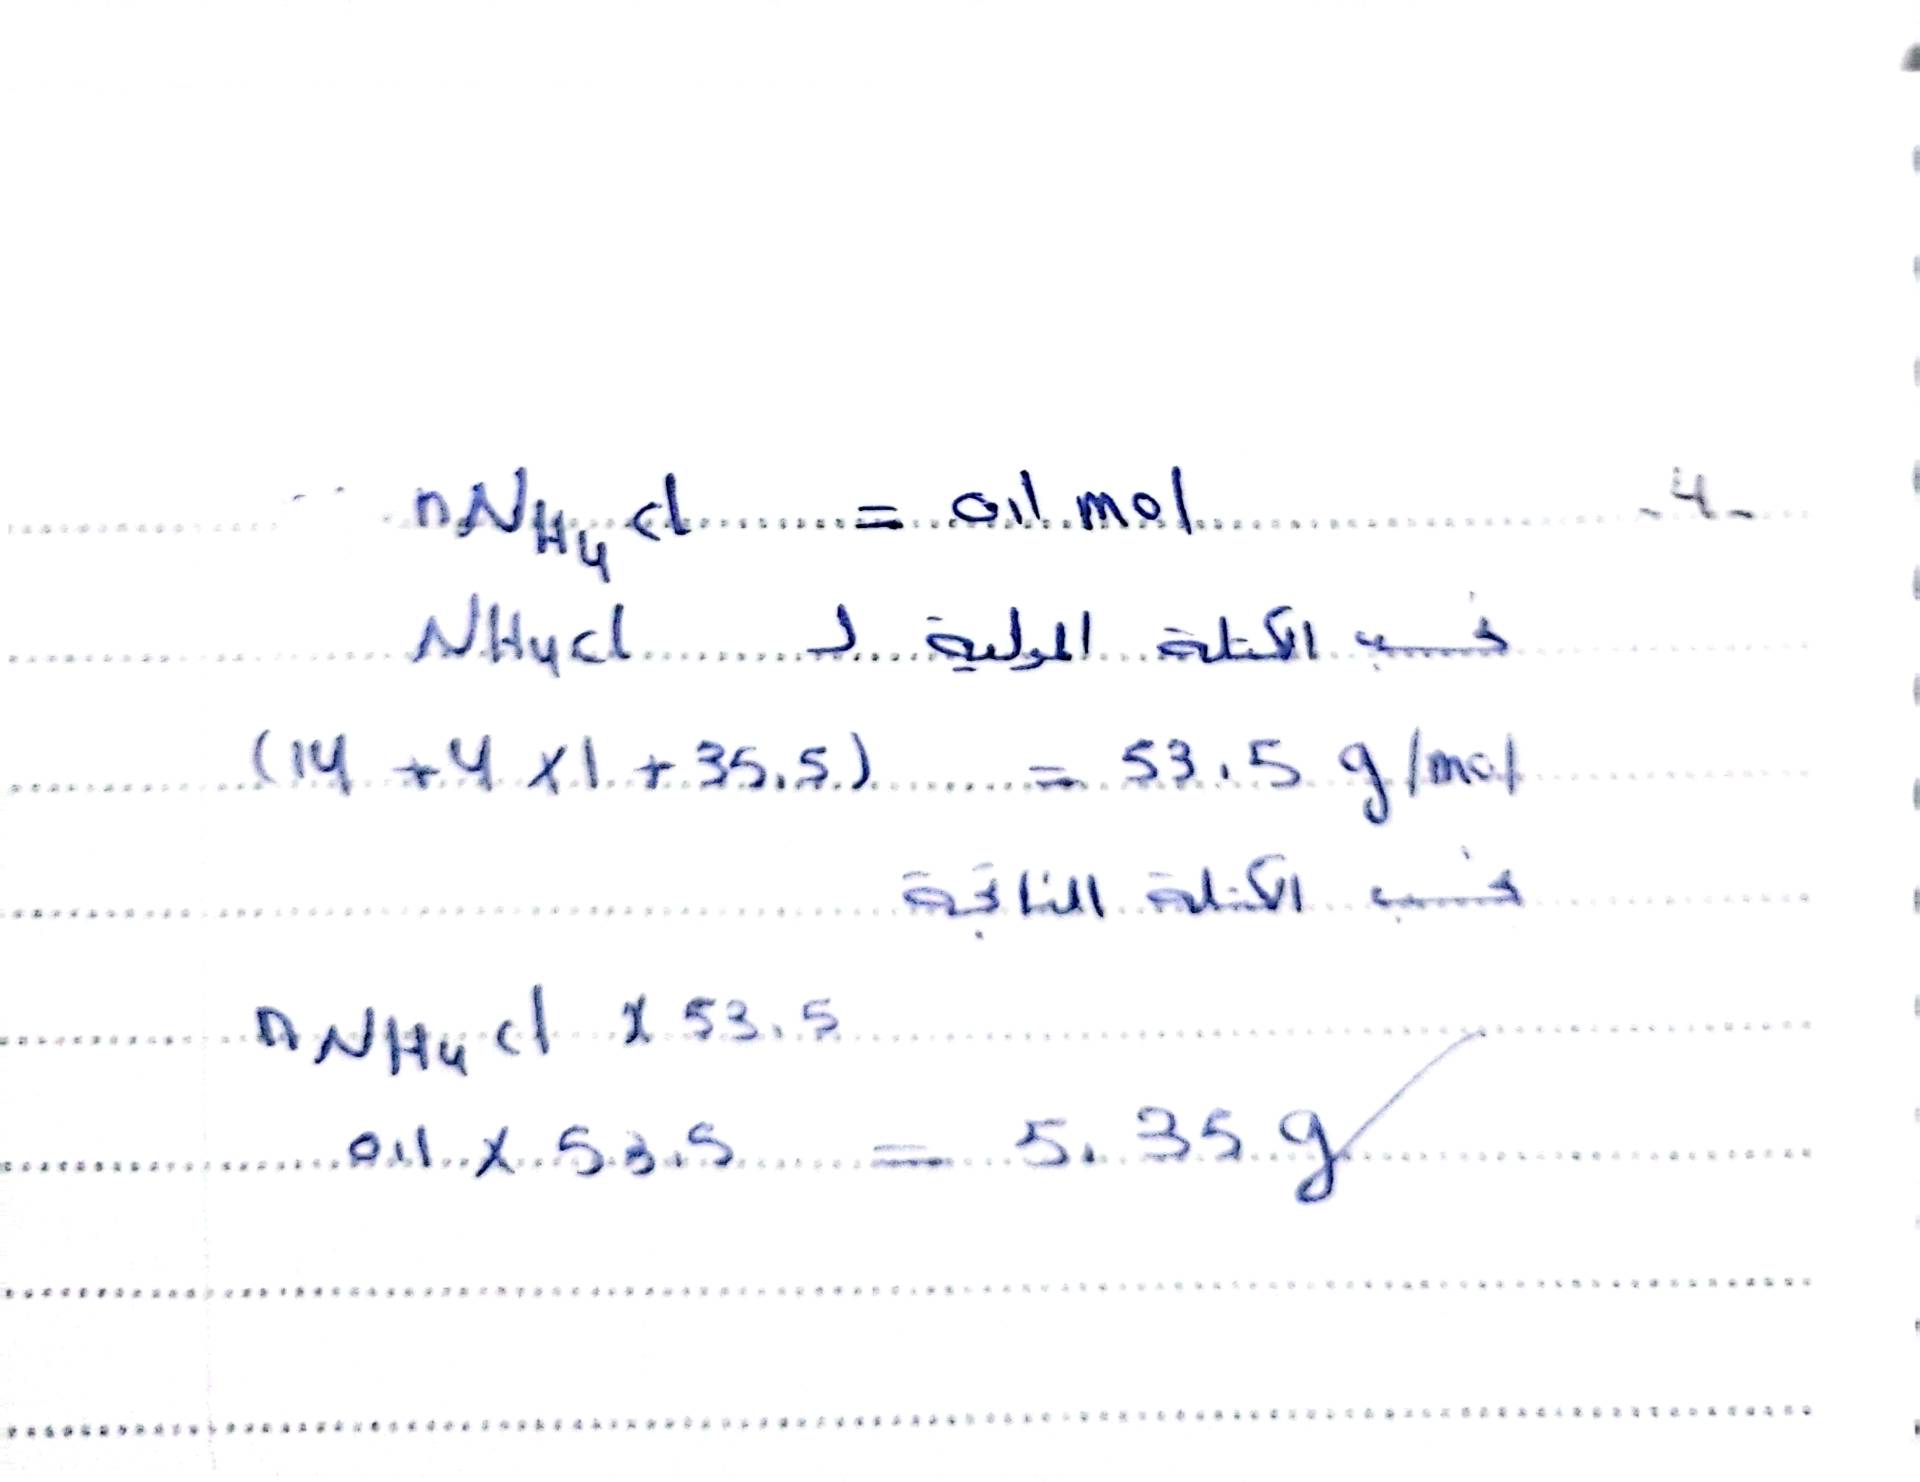 -4-
nNH4Cl = 0,1 mol
نحسب الكتلة المولية لـ NH4Cl
(14 + 4 x 1 + 35,5) = 53,5 g/mol
نحسب الكتلة الناتجة
nNH4Cl x 53,5
0,1 x 53,5 = 5,35 g